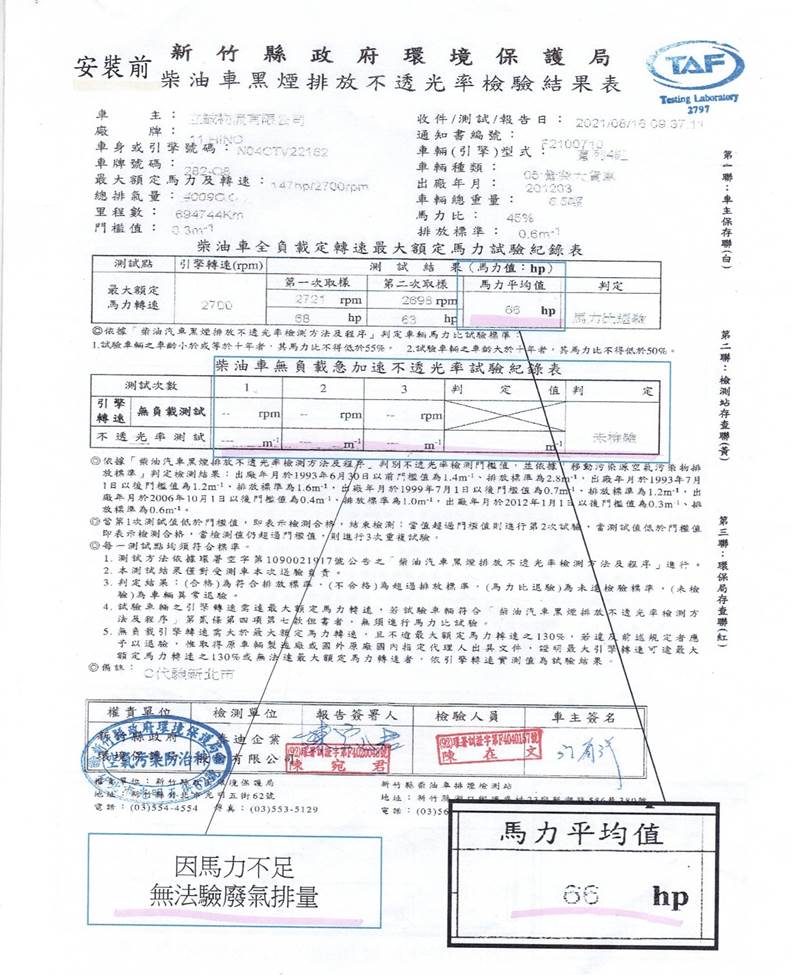 安裝前
新竹縣政府環境保護局
柴油車黑煙排放不透光率檢驗結果表
TAF
Testing Laboratory
2797
車主：
廠牌：11 HINO
車身或引擎號碼：N04CTV22162
車牌號碼：
最大額定馬力及轉速：147hp/2700rpm
總排氣量：4009C.C.
里程數：694744Km
門檻值：0.3m⁻¹
收件/測試/報告日：2021/08/16 09:37:11
通知書編號：F2100710
車輛(引擎)型式：
車輛種類：
出廠年月：201203
車輛總重量：
馬力比：45%
排放標準：0.6m⁻¹
柴油車全負載定轉速最大額定馬力試驗紀錄表
測試點 引擎轉速(rpm) 測試結果(馬力值：hp)
第一次取樣 第二次取樣 馬力平均值 判定
最大額定馬力轉速 2700 2721 rpm 2698 rpm 66 hp 馬力比退驗
68 hp 63 hp
◎依據「柴油汽車黑煙排放不透光率檢測方法及程序」判定車輛馬力比試驗標準：
1.試驗車輛之車齡小於或等於十年者，其馬力比不得低於55%。 2.試驗車輛之車齡大於十年者，其馬力比不得低於50%。
柴油車無負載急加速不透光率試驗紀錄表
測試次數 1 2 3 判定值 判定
引擎轉速 無負載測試 -- rpm -- rpm -- rpm
不透光率測試 --- m⁻¹ --- m⁻¹ --- m⁻¹ 未檢驗
◎依據「柴油汽車黑煙排放不透光率檢測方法及程序」判別不透光率檢測門檻值，並依據「移動污染源空氣污染物排
放標準」判定檢測結果：出廠年月於1993年6月30日以前門檻值為1.4m⁻¹、排放標準為2.8m⁻¹，出廠年月於1993年7月
1日以後門檻值為1.2m⁻¹、排放標準為1.6m⁻¹，出廠年月於1999年7月1日以後門檻值為0.7m⁻¹、排放標準為1.2m⁻¹，出
廠年月於2006年10月1日以後門檻值為0.4m⁻¹、排放標準為1.0m⁻¹，出廠年月於2012年1月1日以後門檻值為0.3m⁻¹、排
放標準為0.6m⁻¹。
◎當第1次測試值低於門檻值，即表示檢測合格，結束檢測；當值超過門檻值則進行第2次試驗，當測試值低於門檻值
即表示檢測合格，當檢測值仍超過門檻值，則進行3次重複試驗。
◎每一測試點均須符合標準。
1. 測試方法依據環署空字第1090021917號公告之「柴油汽車黑煙排放不透光率檢測方法及程序」進行。
2. 本測試結果僅對受測車本次送驗負責。
3. 判定結果：(合格)為符合排放標準，(不合格)為超過排放標準，(馬力比退驗)為未達檢驗標準，(未檢
驗)為車輛異常退驗。
4. 試驗車輛之引擎轉速需達最大額定馬力轉速，若試驗車輛符合「柴油汽車黑煙排放不透光率檢測方
法及程序」第貳條第四項第七款但書者，無須進行馬力比試驗。
5. 無負載引擎轉速需大於最大額定馬力轉速，且不逾最大額定馬力轉速之130%，若違反前述規定者應
予以退驗，惟取得原車輛製造廠或國外原廠國內指定代理人出具文件，證明最大引擎轉速可達最大
額定馬力轉速之130%或無法達最大額定馬力轉速者，依引擎轉速實測值為試驗結果。
◎備註：C代驗新北市
第一聯：車主保存聯(白)
第二聯：檢測站存查聯(黃)
第三聯：環保局存查聯(紅)
權責單位 檢測單位 報告簽署人 檢驗人員 車主簽名
新竹縣政府
環境保護局
空氣污染防治
陳宛君
陳在文
權責單位：新竹縣政府環境保護局
地址：新竹縣竹北市光明五街62號
電話：(03)554-4554 傳真：(03)553-5129
新竹縣柴油車排煙檢測站
因馬力不足
無法驗廢氣排量
馬力平均值
66 hp